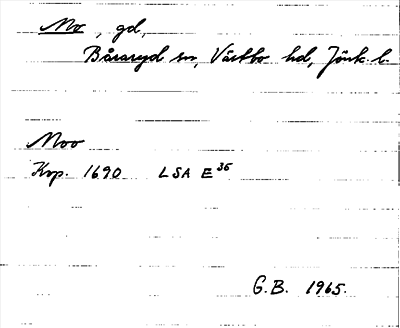 Mo, gd,
Båraryd sn, Västbo hd, Jönk. l.
Moo
Kop. 1690 LSA E³⁶
G.B. 1965.